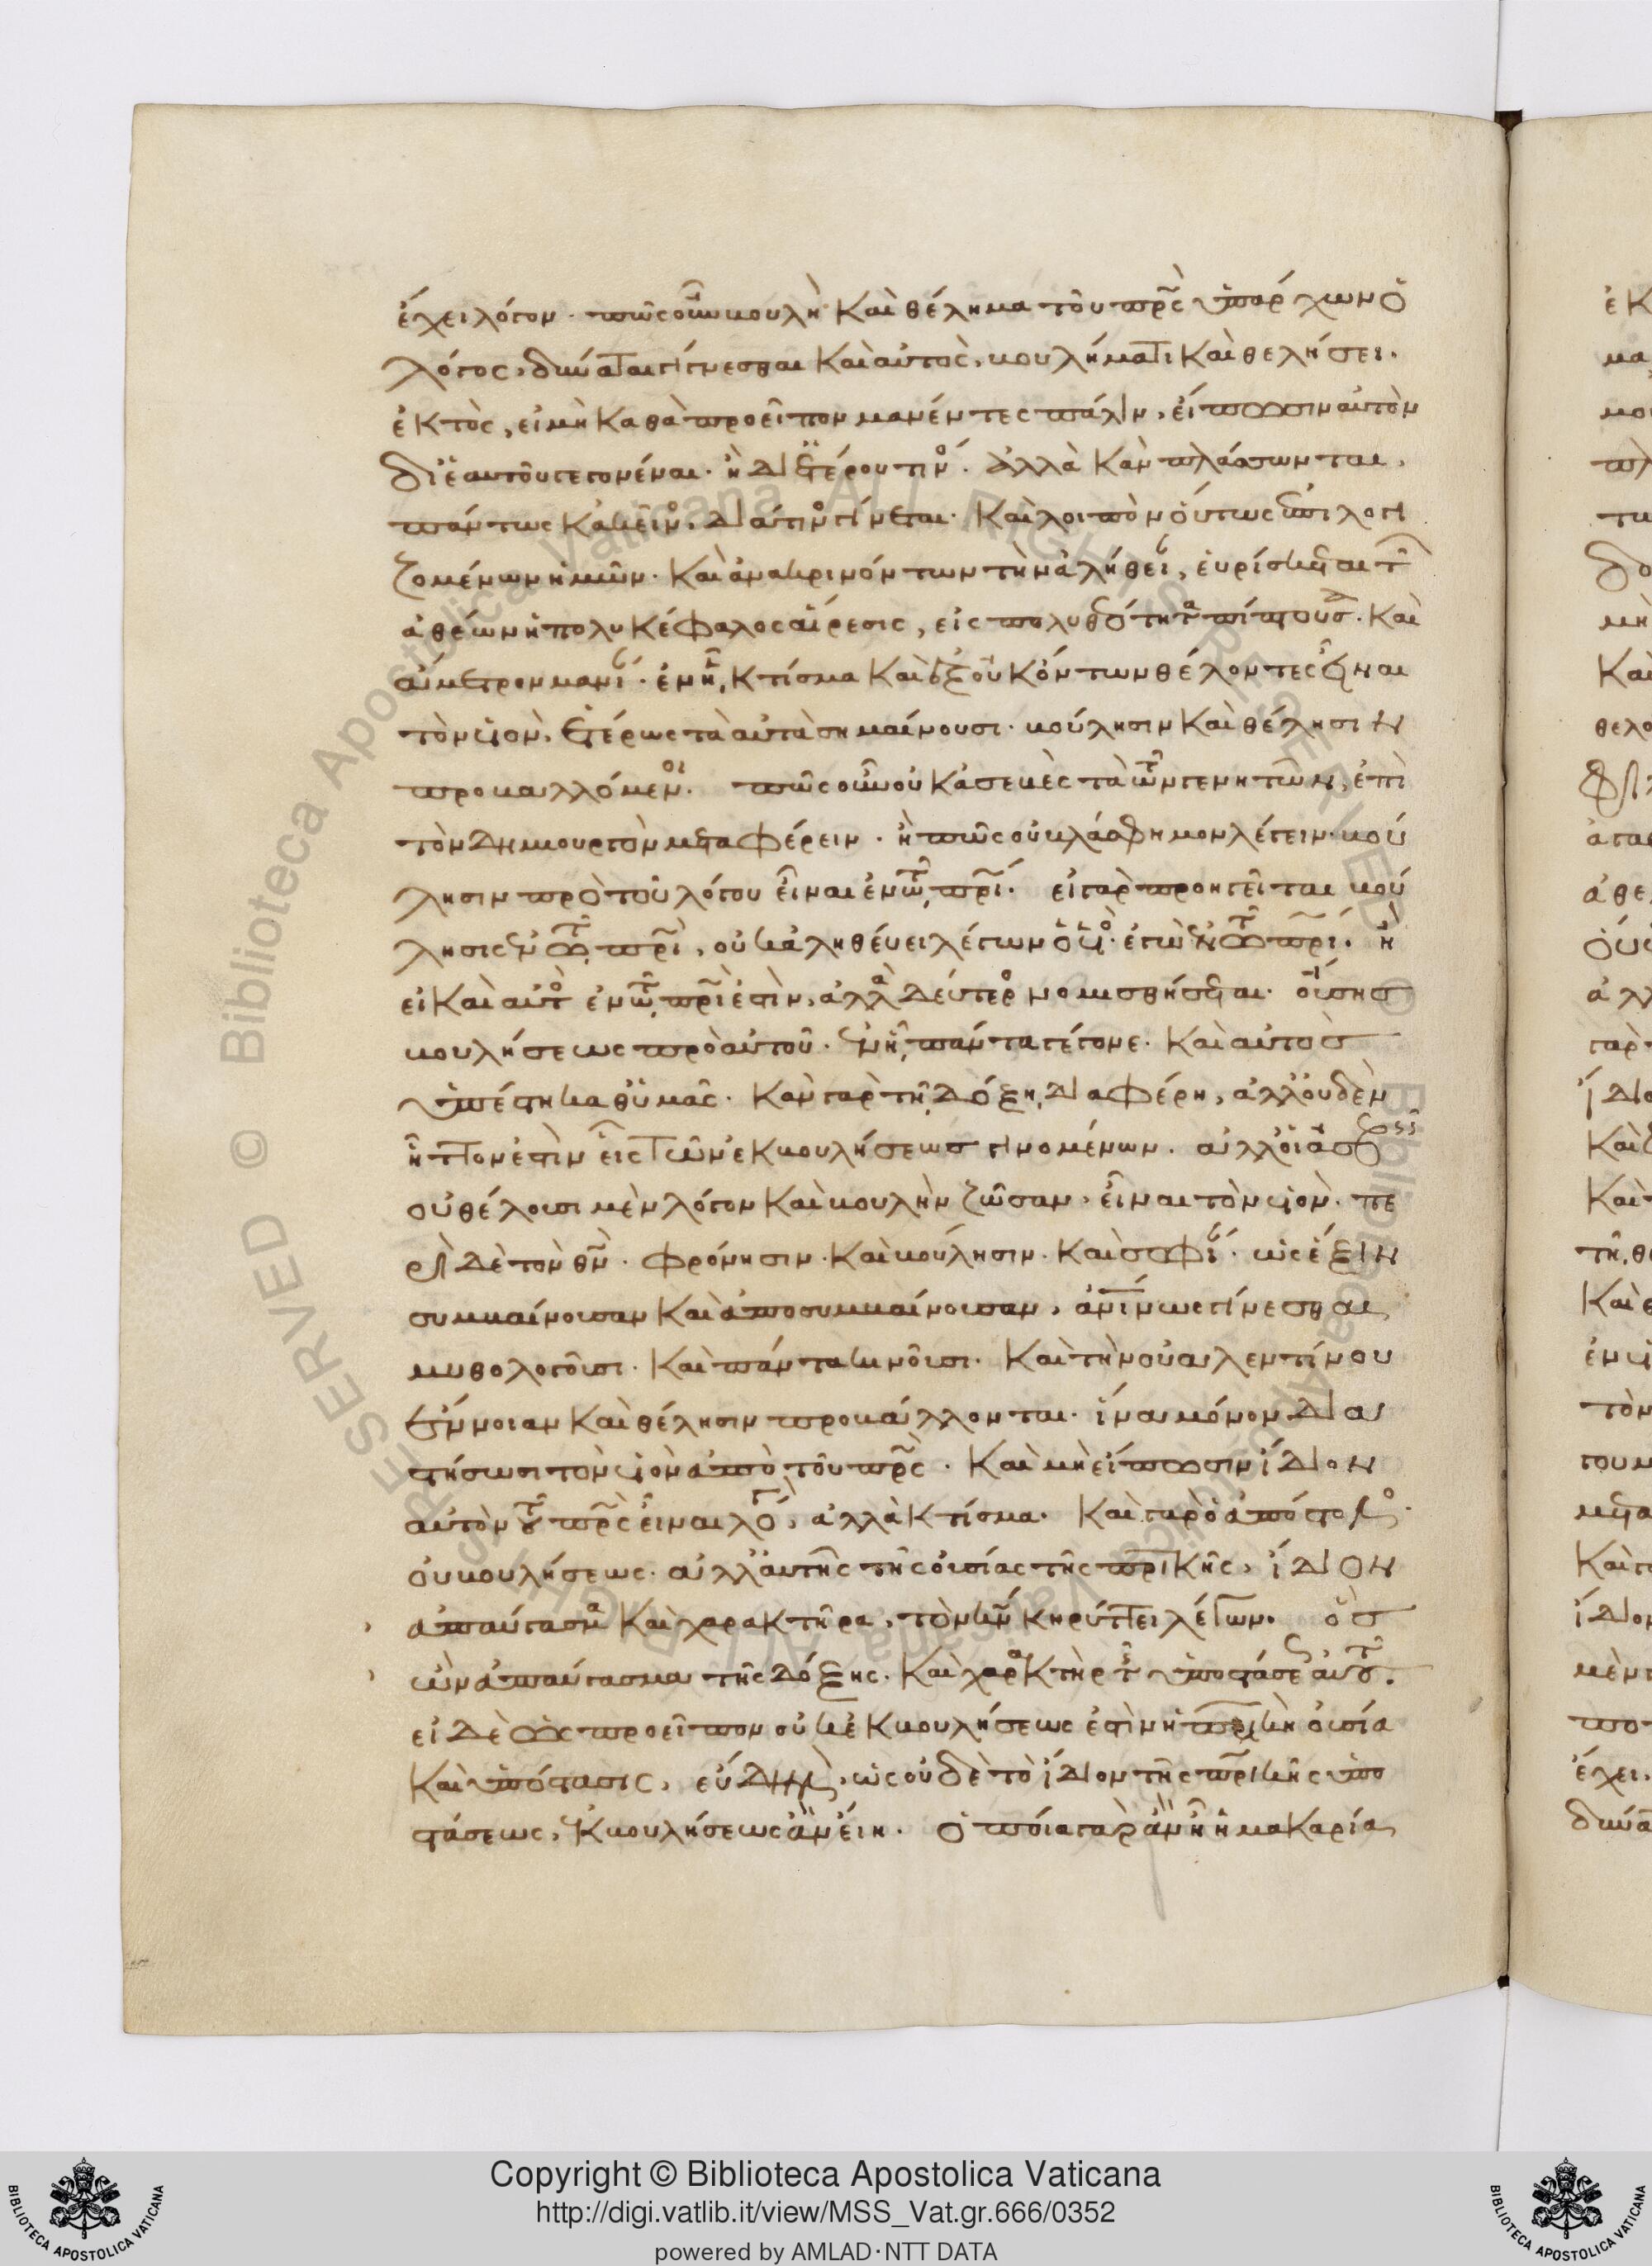 ἔχει λόγον. πῶς οὖν βουλὴ καὶ θέλημα τοῦ πρς ὑπάρχων ὁ
λόγος, δύναται γίνεσθαι καὶ αὐτὸς, βουλήματι καὶ θελήσει.
ἐκτὸς, εἰ μὴ καθὰ προεῖπον μανέντες πάλιν, εἴπωσιν αὐτὸν
δι ἑαυτοῦ γεγονέναι. ἢ δι ἑτέρου τινός. ἀλλὰ κἂν πλάσωνται,
πάντως κἀκεῖνος διά τινος γίνεται. καὶ λοιπὸν οὕτως ἐπιλογι
ζομένων ἡμῶν. καὶ ἀνακρινόντων τὴν ἀλήθειαν, εὑρίσκεται τῶν
ἀθέων ἡ πολυκέφαλος αἵρεσις, εἰς πολυθεότητα πίπτουσα. καὶ
ἄμετρον μανίαν. ἐν ᾗ, κτίσμα καὶ ἐξ οὐκ ὄντων θέλοντες εἶναι
τὸν υἱὸν, ἑτέρως τὰ αὐτὰ σημαίνουσι. βούλησιν καὶ θέλησιν
προβαλλόμενοι. πῶς οὖν οὐκ ἀσεβὲς τὰ τῶν γενητῶν, ἐπὶ
τὸν δημιουργὸν μεταφέρειν. ἢ πῶς οὐ βλάσφημον λέγειν. βού
λησιν πρὸ τοῦ λόγου εἶναι ἐν τῷ πρί. εἰ γὰρ προηγεῖται βού
λησις ἐν τῷ πρὶ, οὐκ ἀληθεύει λέγων ὁ υἱός. ἐγὼ ἐν τῷ πρι. ἢ
εἰ καὶ αὐτὸς ἐν τῷ πρὶ ἐστὶν, ἀλλὰ δεύτερος νομισθήσεται. οὔσης
βουλήσεως πρὸ αὐτοῦ. ἐν ᾗ, πάντα γέγονε. καὶ αὐτὸς
ὑπέστη καθ ὑμᾶς. κἂν γὰρ τῇ δόξῃ διαφέρῃ, ἀλλ οὐδὲν
ἧττον ἐστὶν εἷς τῶν ἐκ βουλήσεως γινομένων. ἀλλ οἱ ἀσεβεῖς
οὐ θέλουσι μὲν λόγον καὶ βουλὴν ζῶσαν, εἶναι τὸν υἱὸν. πε
ρὶ δὲ τὸν θν. φρόνησιν. καὶ βούλησιν. καὶ σοφίαν. ὡς ἕξιν
συμβαίνουσαν καὶ ἀποσυμβαίνουσαν, ἀνίνως γίνεσθαι
μυθολογοῦσι. καὶ πάντα κινοῦσι. καὶ τὴν οὐαλεντίνου
ἔννοιαν καὶ θέλησιν προβάλλονται. ἵνα μόνον δια
στήσωσι τὸν υἱὸν ἀπὸ τοῦ πρς. καὶ μὴ εἴπωσιν ἴδιον
αὐτὸν τοῦ πρς εἶναι λόγον, ἀλλὰ κτίσμα. καὶ γὰρ ὁ ἀπόστολος.
οὐ βουλήσεως. ἀλλ αὐτῆς τῆς οὐσίας τῆς πρικῆς, ἴδιον
ἀπαύγασμα καὶ χαρακτῆρα, τὸν κν κηρύττει λέγων. ὃς
ὢν ἀπαύγασμα τῆς δόξης. καὶ χαρακτὴρ τῆς ὑποστάσεως αὐτοῦ.
εἰ δὲ ὡς προεῖπον οὐκ ἐκ βουλήσεως ἐστὶν ἡ πρικὴ οὐσία
καὶ ὑπόστασις, εὔδηλον, ὡς οὐδὲ τὸ ἴδιον τῆς πρικῆς ὑπο
στάσεως, ἐκ βουλήσεως ἂν εἴη. ὁποία γὰρ ἂν ᾖ ἡ μακαρία
Copyright © Biblioteca Apostolica Vaticana
http://digi.vatlib.it/view/MSS_Vat.gr.666/0352
powered by AMLAD·NTT DATA